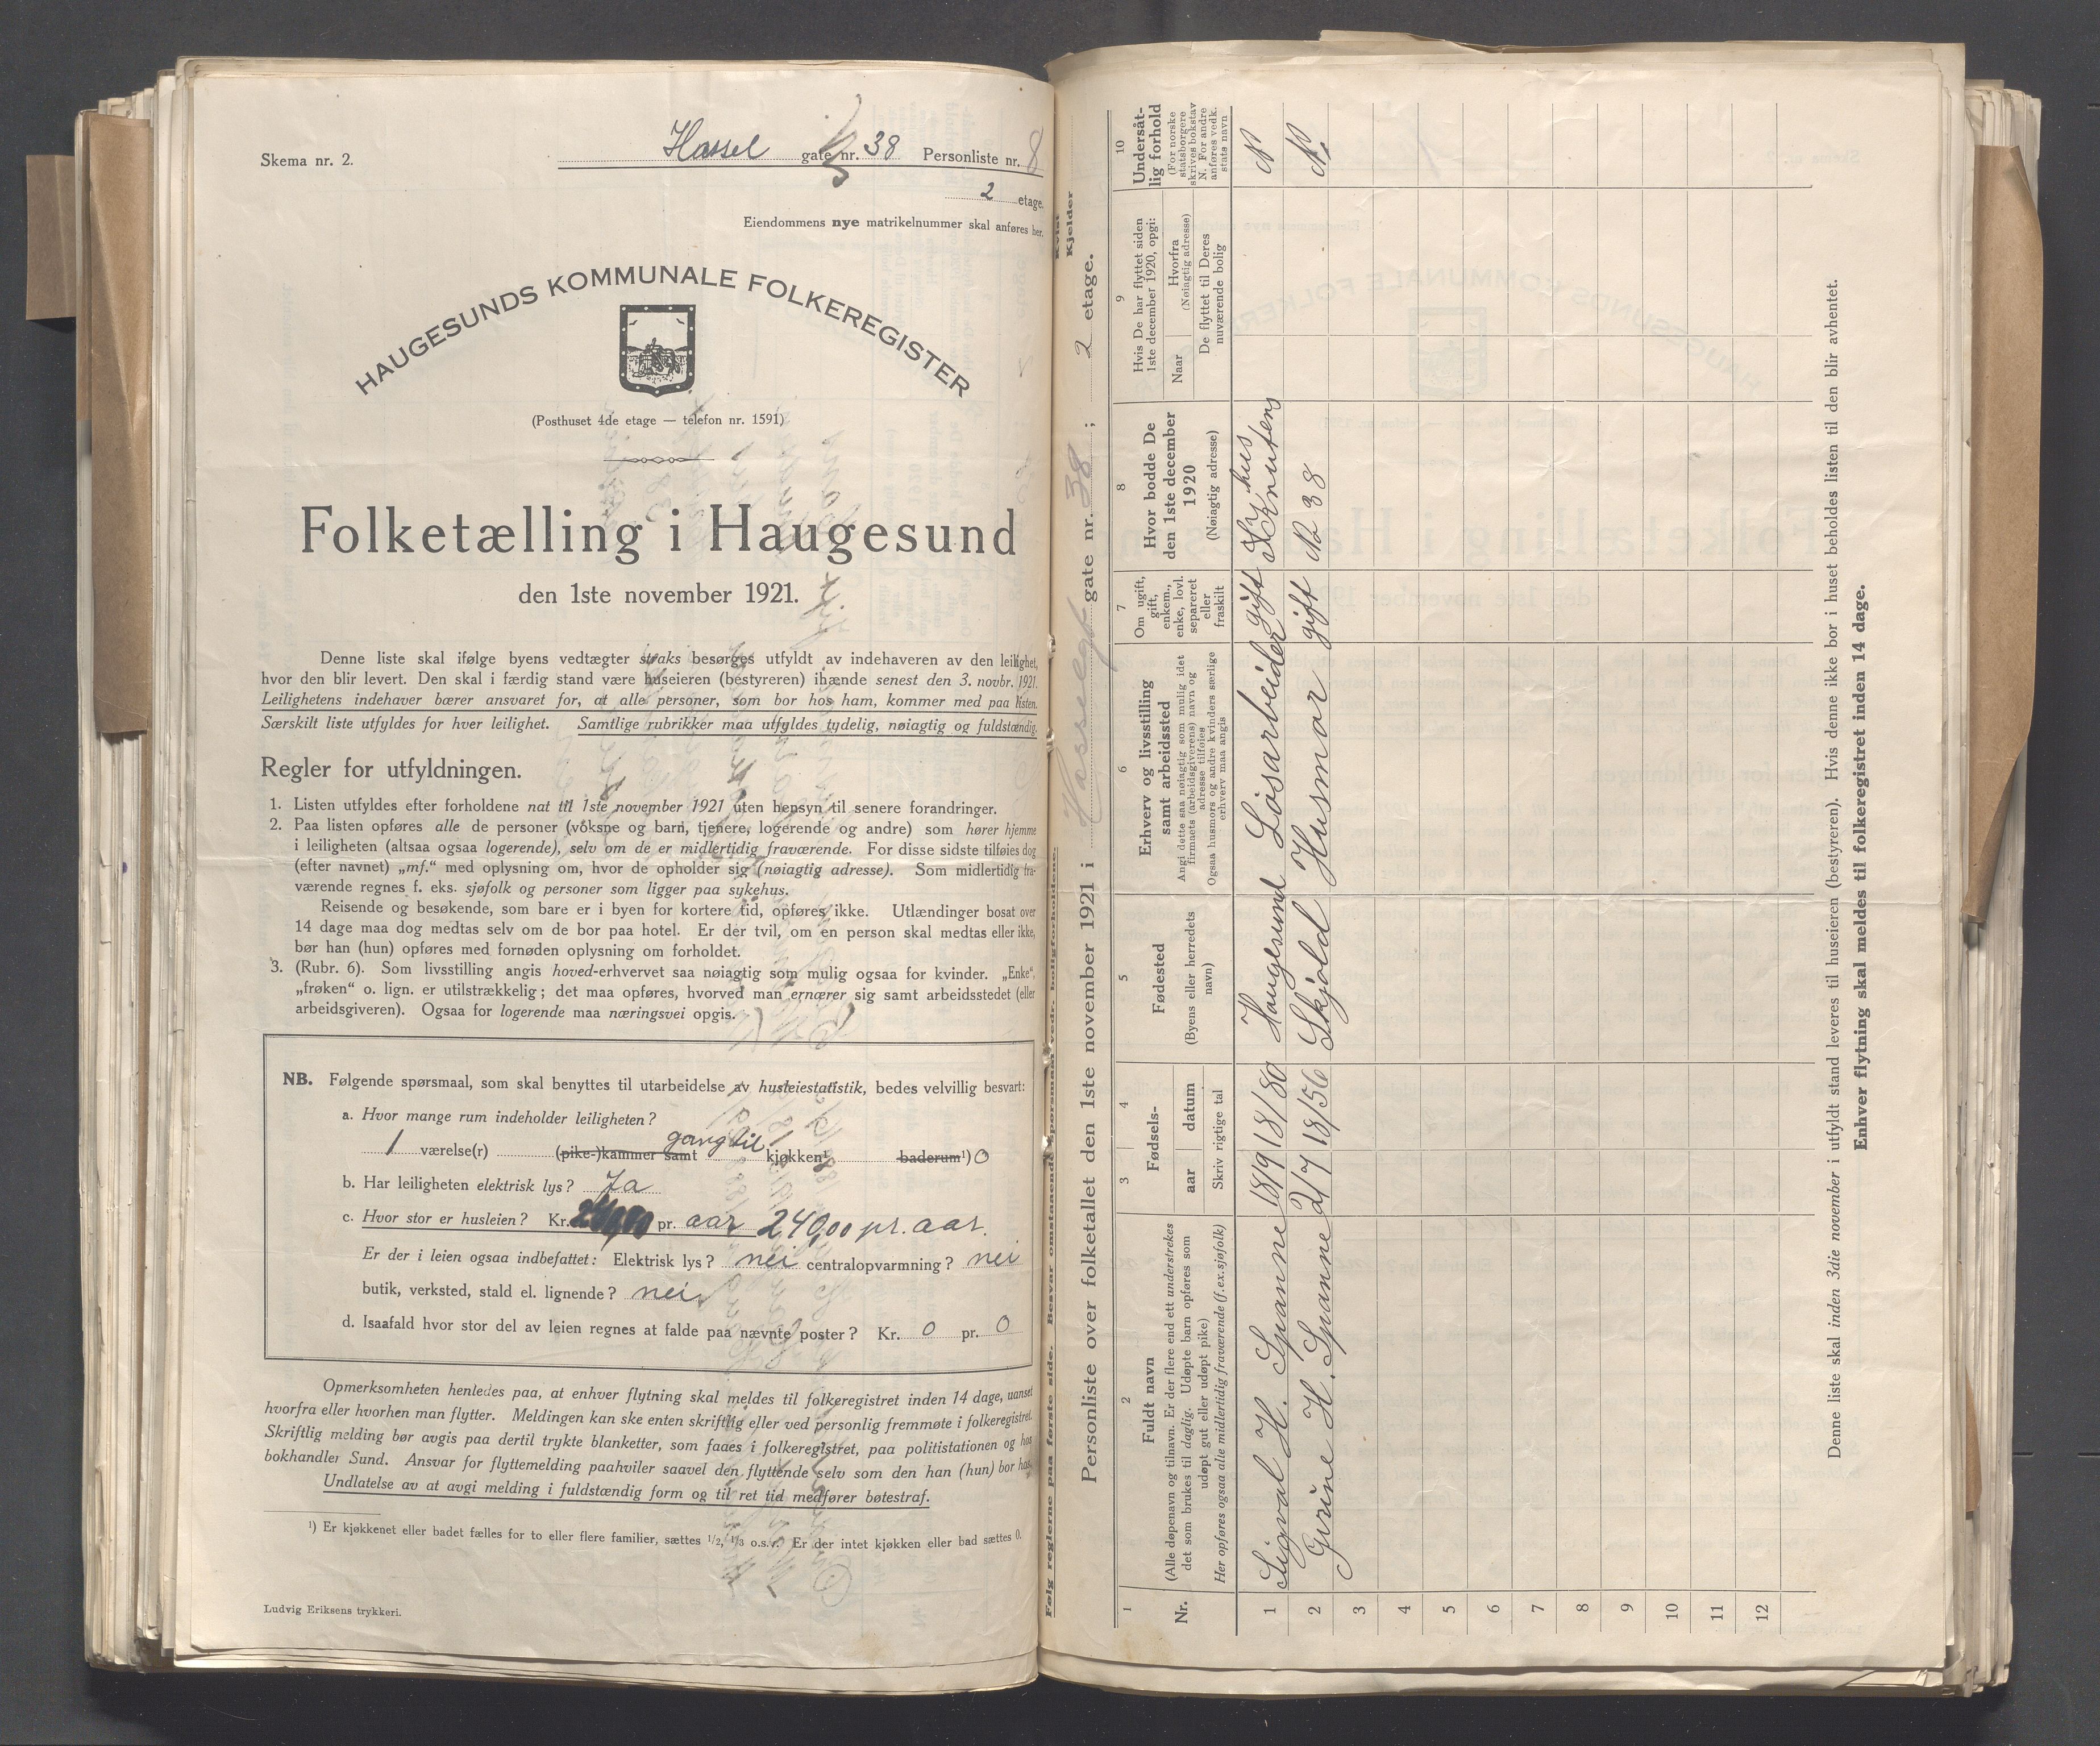 Skema nr. 2.
Hassel gate nr. 38 Personliste nr. 8
2 etage.
Eiendommens nye matrikelnummer skal anføres her.
HAUGESUNDS KOMMUNALE FOLKEREGISTER
(Posthuset 4de etage — telefon nr. 1591)
Folketælling i Haugesund
den 1ste november 1921.
Denne liste skal ifølge byens vedtægter straks besørges utfyldt av indehaveren av den leilighet,
hvor den blir levert. Den skal i færdig stand være huseieren (bestyreren) ihænde senest den 3. novbr. 1921.
Leilighetens indehaver bærer ansvaret for, at alle personer, som bor hos ham, kommer med paa listen.
Særskilt liste utfyldes for hver leilighet. Samtlige rubrikker maa utfyldes tydelig, nøiagtig og fuldstændig.
Regler for utfyldningen.
1. Listen utfyldes efter forholdene nat til 1ste november 1921 uten hensyn til senere forandringer.
2. Paa listen opføres alle de personer (voksne og barn, tjenere, logerende og andre) som hører hjemme
i leiligheten (altsaa ogsaa logerende), selv om de er midlertidig fraværende. For disse sidste tilføies dog
(efter navnet) „mf.“ med oplysning om, hvor de opholder sig (nøiagtig adresse). Som midlertidig fra-
værende regnes f. eks. sjøfolk og personer som ligger paa sykehus.
Reisende og besøkende, som bare er i byen for kortere tid, opføres ikke. Utlændinger bosat over
14 dage maa dog medtas selv om de bor paa hotel. Er der tvil, om en person skal medtas eller ikke,
bør han (hun) opføres med fornøden oplysning om forholdet.
3. (Rubr. 6). Som livsstilling angis hoved-erhvervet saa nøiagtig som mulig ogsaa for kvinder. „Enke“,
„frøken“ o. lign. er utilstrækkelig; det maa opføres, hvorved man ernærer sig samt arbeidsstedet (eller
arbeidsgiveren). Ogsaa for logerende maa næringsvei opgis.
NB. Følgende spørsmaal, som skal benyttes til utarbeidelse av husleiestatistik, bedes velvillig besvart:
a. Hvor mange rum indeholder leiligheten?
1 værelse(r) (pike-)kammer samt gang til kjøkken¹) baderum¹) 0
b. Har leiligheten elektrisk lys? Ja
c. Hvor stor er husleien? Kr. 240,00 pr. aar 240,00 pr. aar.
Er der i leien ogsaa indbefattet: Elektrisk lys? nei centralopvarmning? nei
butik, verksted, stald el. lignende? nei
d. Isaafald hvor stor del av leien regnes at falde paa nævnte poster? Kr. 0 pr. 0
Opmerksomheten henledes paa, at enhver flytning skal meldes til folkeregistret inden 14 dage, uanset
hvorfra eller hvorhen man flytter. Meldingen kan ske enten skriftlig eller ved personlig fremmøte i folkeregistret.
Skriftlig melding bør avgis paa dertil trykte blanketter, som faaes i folkeregistret, paa politistationen og hos
bokhandler Sund. Ansvar for flyttemelding paahviler saavel den flyttende selv som den han (hun) bor hos.
Undlatelse av at avgi melding i fuldstændig form og til ret tid medfører bøtestraf.
¹) Er kjøkkenet eller badet fælles for to eller flere familier, sættes 1/2, 1/3 o.s.v. Er der intet kjøkken eller bad sættes 0.
Ludvig Eriksens trykkeri.
Følg reglerne paa første side. Besvar omstaaende spørsmaal vedr. boligforholdene.
Kvist
Kjelder
Personliste over folketallet den 1ste november 1921 i Hasselgt gate nr. 38; 2 etage.
1
Nr.
2
Fuldt navn
(Alle døpenavn og tilnavn. Er der flere end ett understrekes
det som brukes til daglig. Udøpte barn opføres som
udøpt gut eller udøpt pike)
Her opføres ogsaa alle midlertidig fraværende (f.ex.sjøfolk)
3 4
Fødsels-
aar datum
Skriv rigtige tal
5
Fødested
(Byens eller herredets
navn)
6
Erhverv og livsstilling
samt arbeidssted
Angi dette saa nøiagtig som mulig idet
firmaets (arbeidsgiverens) navn og
adresse tilføies
Ogsaa husmors og andre kvinders særlige
erhverv maa angis
7
Om ugift,
gift,
enkem.,
enke, lovl.
separeret
eller
fraskilt
8
Hvor bodde De
den 1ste december
1920
(Nøiagtig adresse)
9
Hvis De har flyttet siden
1ste december 1920, opgi:
Naar
Hvorfra
(Nøiagtig adresse)
De flyttet til Deres
nuværende bolig
10
Undersåt-
lig forhold
(For norske
statsborgere
skrives bokstav
N. For andre
anføres vedk.
stats navn
1 Sigval H. Spanne 18/9 18/80 Haugesund Løsarbeider gift Knutsens hus N
2 Girine H. Spanne 21/7 18/56 Skjold Husmor gift No 38 N.
3
4
5
6
7
8
9
10
11
12
Denne liste skal inden 3die november i utfyldt stand leveres til huseieren (bestyreren). Hvis denne ikke bor i huset beholdes listen til den blir avhentet.
Enhver flytning skal meldes til folkeregistret inden 14 dage.